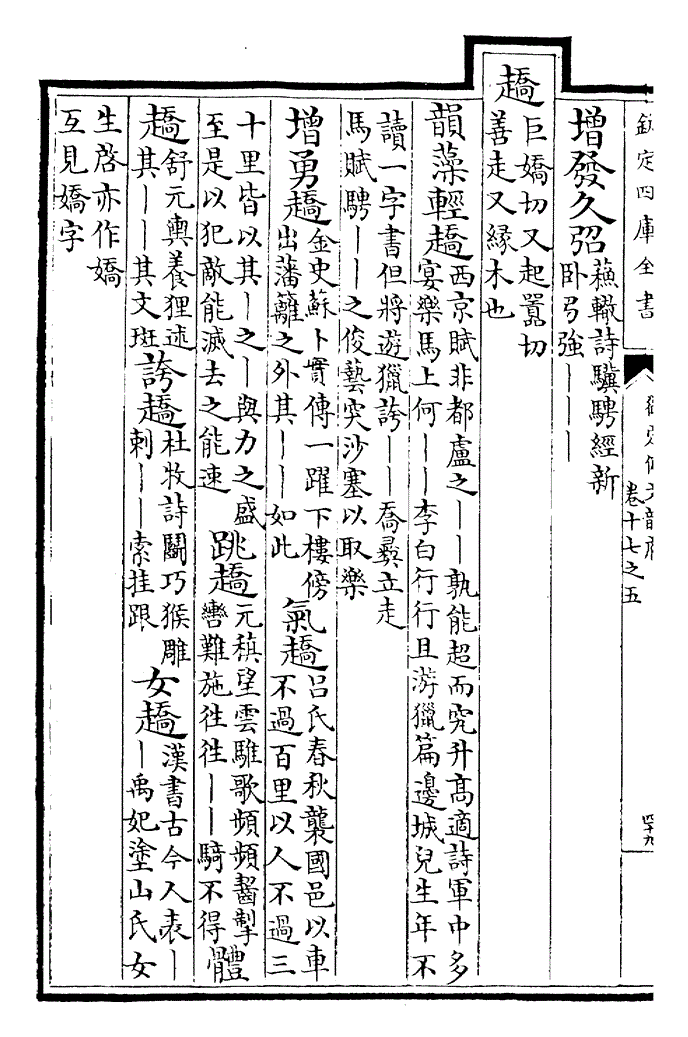 欽定四庫全書
卷十七之五
四十九
增發久弨蘇轍詩驥騁經新
卧弓強丨丨丨
趫巨嬌切又起嚻切
善走又緣木也
韻藻輕趫西京賦非都盧之丨丨孰能超而究升高適詩軍中多
宴樂馬上何丨丨李白行行且游獵篇邊城兒生年不
讀一字書但將遊獵誇丨丨喬彞立走
馬賦騁丨丨之俊藝突沙塞以取樂
增勇趫金史蘇卜實傳一躍下樓傍
出藩籬之外其丨丨如此
氣趫呂氏春秋襲國邑以車
不過百里以人不過三
十里皆以其丨之丨與力之盛
至是以犯敵能滅去之能速
跳趫元稹望雲騅歌頻頻齧掣
轡難施往往丨丨騎不得
體
趫舒元輿養狸述
其丨丨其文斑
誇趫杜牧詩鬭巧猴雕
刺丨丨索挂跟
女趫漢書古今人表丨
丨禹妃塗山氏女
生啓亦作嬌
互見嬌字